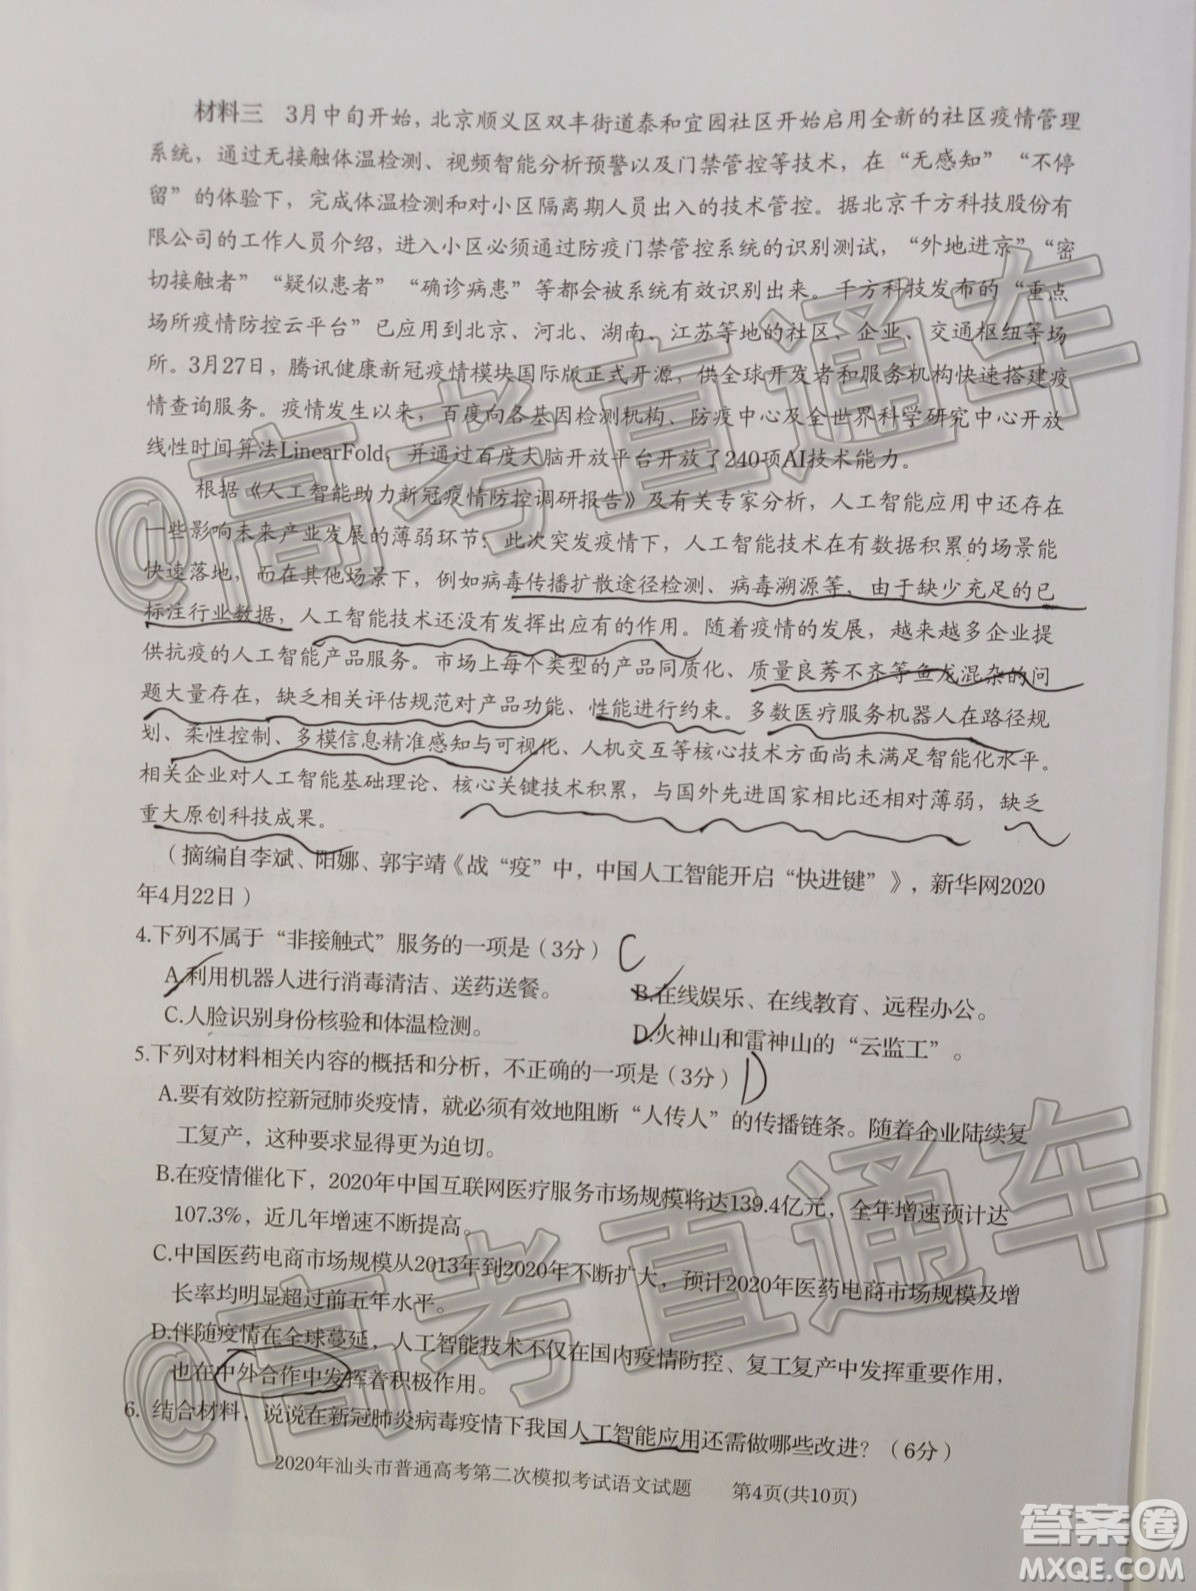 材料三 3月中旬开始，北京顺义区双丰街道泰和宜园社区开始启用全新的社区疫情管理
系统，通过无接触体温检测、视频智能分析预警以及门禁管控等技术，在“无感知”“不停
留”的体验下，完成体温检测和对小区隔离期人员出入的技术管控。据北京千方科技股份有
限公司的工作人员介绍，进入小区必须通过防疫门禁管控系统的识别测试，“外地进京”“密
切接触者”“疑似患者”“确诊病患”等都会被系统有效识别出来。千方科技发布的“重点
场所疫情防控云平台”已应用到北京、河北、湖南、江苏等地的社区、企业、交通枢纽等场
所。3月27日，腾讯健康新冠疫情模块国际版正式开源，供全球开发者和服务机构快速搭建疫
情查询服务。疫情发生以来，百度向各基因检测机构、防疫中心及全世界科学研究中心开放
线性时间算法LinearFold，并通过百度大脑开放平台开放了240项AI技术能力。
根据《人工智能助力新冠疫情防控调研报告》及有关专家分析，人工智能应用中还存在
一些影响未来产业发展的薄弱环节：此次突发疫情下，人工智能技术在有数据积累的场景能
快速落地，而在其他场景下，例如病毒传播扩散途径检测、病毒溯源等，由于缺少充足的已
标注行业数据，人工智能技术还没有发挥出应有的作用。随着疫情的发展，越来越多企业提
供抗疫的人工智能产品服务。市场上每个类型的产品同质化、质量良莠不齐等鱼龙混杂的问
题大量存在，缺乏相关评估规范对产品功能、性能进行约束。多数医疗服务机器人在路径规
划、柔性控制、多模信息精准感知与可视化、人机交互等核心技术方面尚未满足智能化水平。
相关企业对人工智能基础理论、核心关键技术积累，与国外先进国家相比还相对薄弱，缺乏
重大原创科技成果。
（摘编自李斌、阳娜、郭宇靖《战“疫”中，中国人工智能开启“快进键”》，新华网2020
年4月22日）
4.下列不属于“非接触式”服务的一项是（3分） C
A.利用机器人进行消毒清洁、送药送餐。 B.在线娱乐、在线教育、远程办公。
C.人脸识别身份核验和体温检测。 D.火神山和雷神山的“云监工”。
5.下列对材料相关内容的概括和分析，不正确的一项是（3分） D
A.要有效防控新冠肺炎疫情，就必须有效地阻断“人传人”的传播链条。随着企业陆续复
工复产，这种要求显得更为迫切。
B.在疫情催化下，2020年中国互联网医疗服务市场规模将达139.4亿元，全年增速预计达
107.3%，近几年增速不断提高。
C.中国医药电商市场规模从2013年到2020年不断扩大，预计2020年医药电商市场规模及增
长率均明显超过前五年水平。
D.伴随疫情在全球蔓延，人工智能技术不仅在国内疫情防控、复工复产中发挥重要作用，
也在中外合作中发挥着积极作用。
6. 结合材料，说说在新冠肺炎病毒疫情下我国人工智能应用还需做哪些改进？（6分）
2020年汕头市普通高考第二次模拟考试语文试题 第4页(共10页)
@高考直通车
@高考直通车
答案圈
MXQE.COM